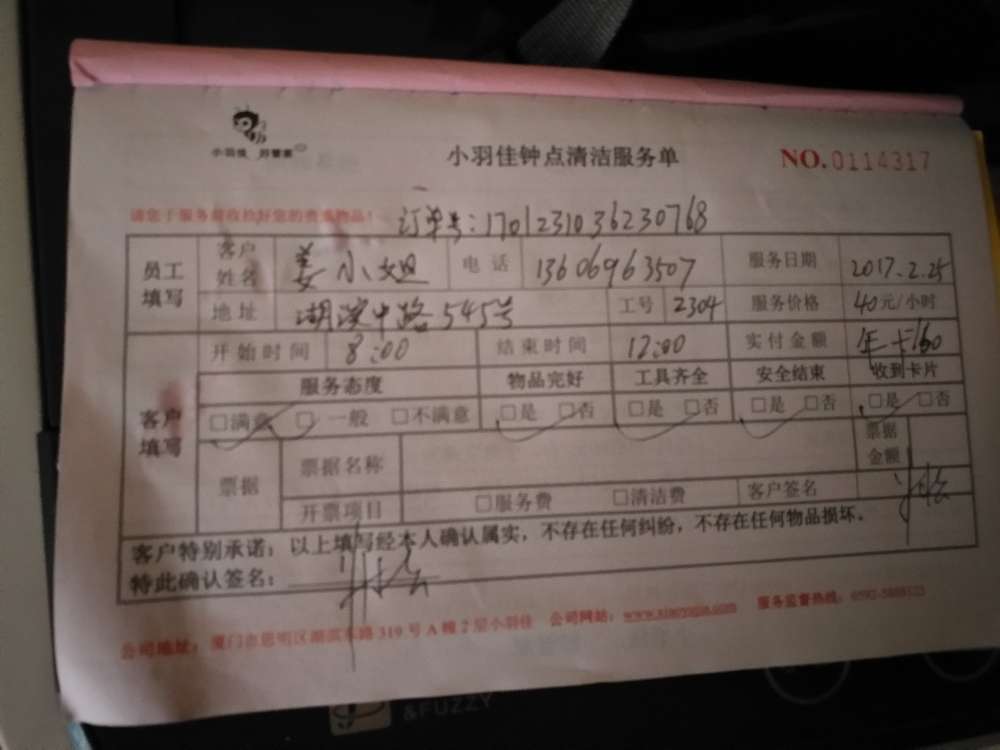 小羽佳 好管家
小羽佳钟点清洁服务单
NO.0114317
请您于服务前收拾好您的贵重物品!
订单号:1701231036230768
员工填写 客户姓名 姜小姐 电话 13606963507 服务日期 2017.2.25
地址 湖滨中路545号 工号 2304 服务价格 40元/小时
客户填写 开始时间 8:00 结束时间 12:00 实付金额 年卡160
服务态度 物品完好 工具齐全 安全结束 收到卡片
□满意 □一般 □不满意 □是 □否 □是 □否 □是 □否 □是 □否
票据 票据名称 票据金额
开票项目 □服务费 □清洁费 客户签名
客户特别承诺:以上填写经本人确认属实,不存在任何纠纷,不存在任何物品损坏.
特此确认签名:
公司地址:厦门市思明区湖滨东路319号A幢2层小羽佳 公司网站: 服务监督热线:
&FUZZY